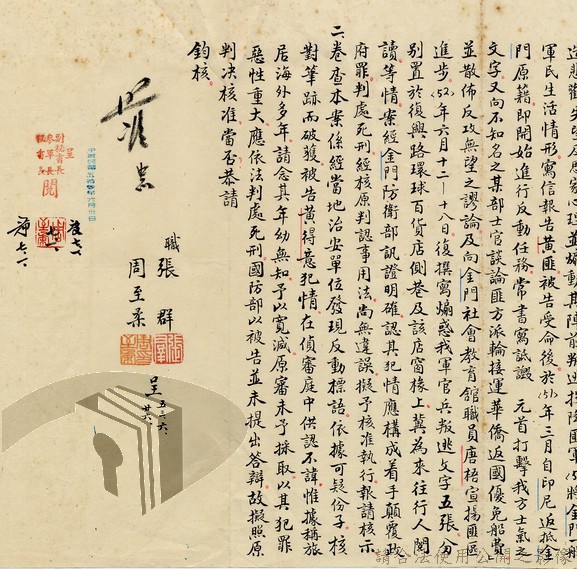 軍民生活情形寫信報告黃匪被告受命後於(51)年三月自印尼返抵金
門原籍即開始進行反動任務常書寫詆譭　元首打擊我方士氣之
文字又向不知名之某部士官談論匪方派輪接運華僑返國優免船費
並散佈反攻無望之謬論及向金門社會教育館職員唐梧宣揚匪區
進步(52)年六月十二—十八日復撰寫煽惑我軍官兵叛逃文字五張分
別置於復興路環球百貨店側巷及該店窗檯上冀為來往行人閱
讀等情案經金門防衛部訊證明確認其犯情應構成着手顛覆政
府罪判處死刑經核原判認事用法尚無違誤擬予核准執行報請核示
二、卷查本案係經當地治安單位發現反動標語依據可疑份子核
對筆跡而破獲被告黃得意犯情在偵審庭中供認不諱惟據稱旅
居海外多年請念其年幼無知予以寬減原審未予採取以其犯罪
惡性重大應依法判處死刑國防部以被告並未提出答辯故擬照原
判決核准當否恭請
鈞核
職 張群
周至柔
呈 五、六、
廿六、
呈
副秘書長
參軍長
秘書長
閱
七、六、
請合法使用公開之影像